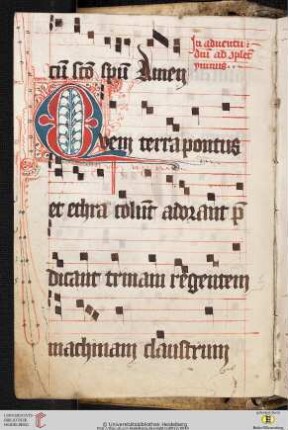 In adventu
dni ad
cū scō spū Amen
Quem terra pontus
et ethra colūt adorant p̄
dicant trinam regentem
machinam claustrum
UNIVERSITÄTS-
BIBLIOTHEK
HEIDELBERG
© Universitätsbibliothek Heidelberg